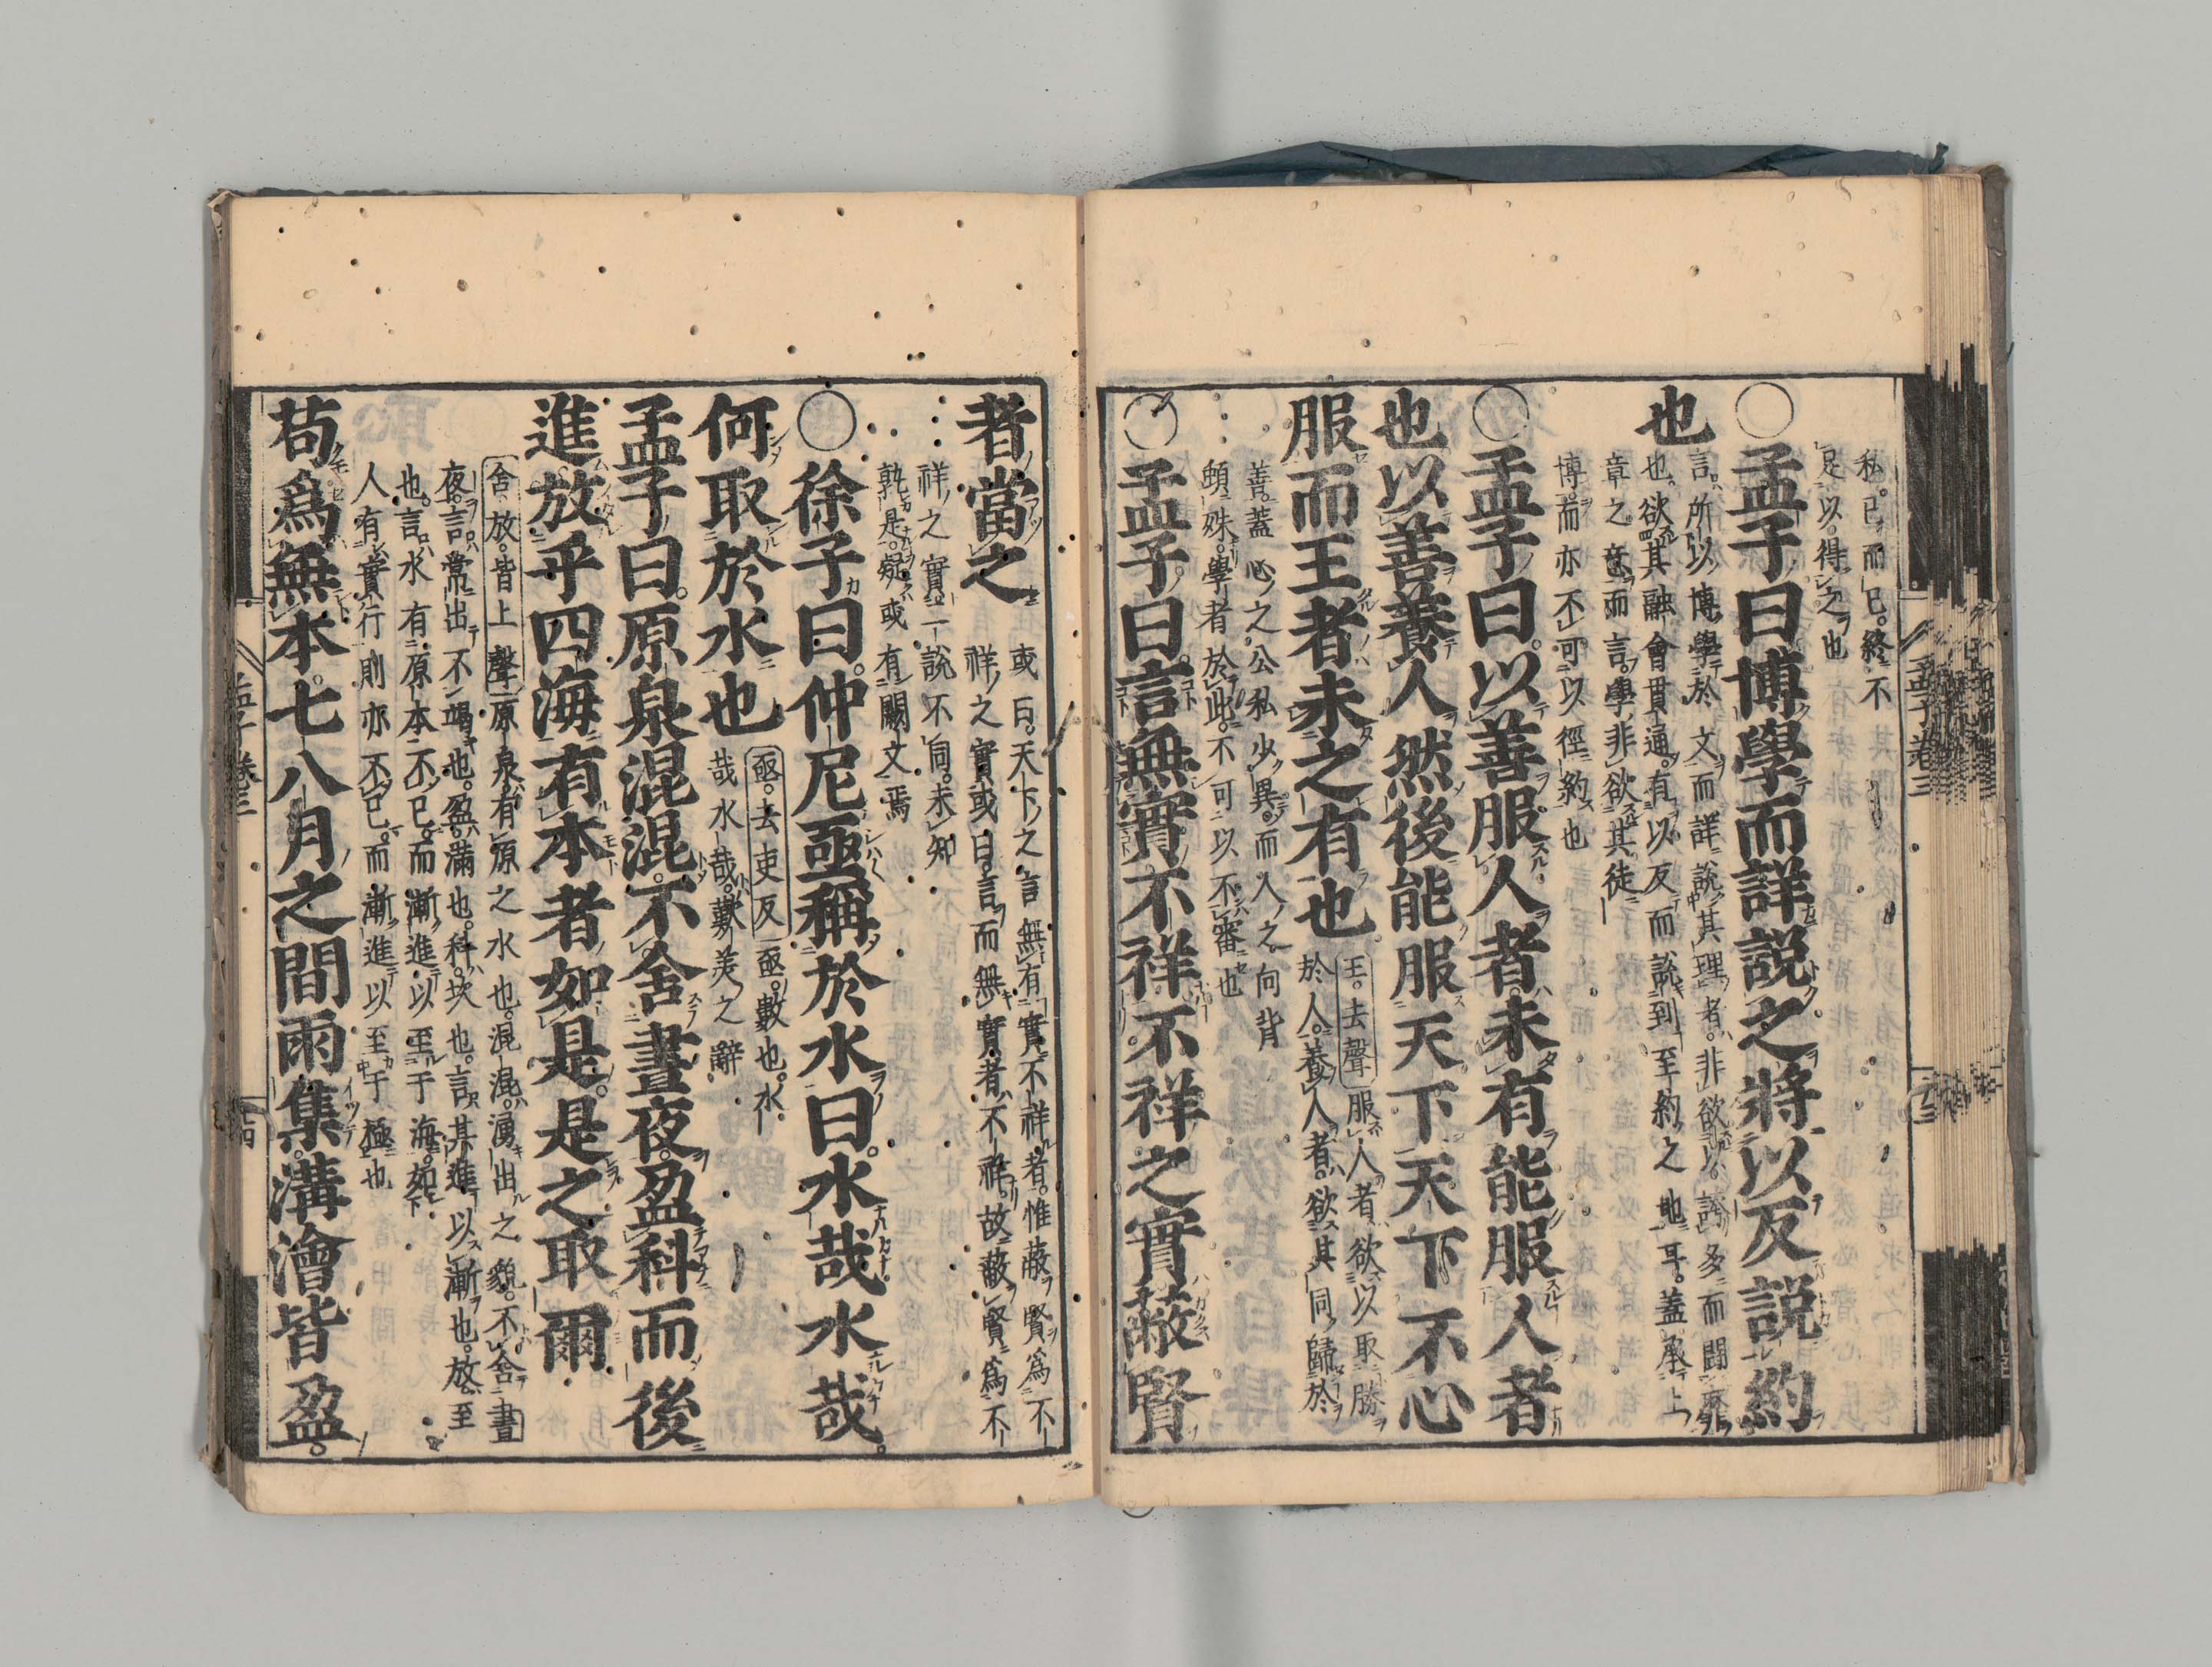 私已而已終不
足以得之也
○孟子曰博學而詳說之將以反說約
也
言所以博學於文而詳說其理者非欲以誇多而鬪靡
也欲其融會貫通有以反而說到至約之地耳蓋承上
章之意而言學非欲其徒
博而亦不可以徑約也
○孟子曰以善服人者未有能服人者
也以善養人然後能服天下天下不心
服而王者未之有也
王去聲服人者欲以取勝
於人養人者欲其同歸於
善蓋心之公私少異而人之向背
頓殊學者於此不可以不審也
○孟子曰言無實不祥不祥之實蔽賢
孟子卷三
十三
者當之
或曰天下之言無有實不祥者惟蔽賢爲不
祥之實或曰言而無實者不祥故蔽賢爲不
祥之實二說不同未知
孰是疑或有闕文焉
○徐子曰仲尼亟稱於水曰水哉水哉
何取於水也
亟去吏反亟數也水
哉水哉歎美之辭
孟子曰原泉混混不舍晝夜盈科而後
進放乎四海有本者如是是之取爾
舍放皆上聲原泉有原之水也混混湧出之貌不舍晝
夜言常出不竭也盈滿也科坎也言其進以漸也放至
也言水有原本不已而漸進以至于海如
人有實行則亦不已而漸進以至于極也
苟爲無本七八月之間雨集溝澮皆盈
孟子卷三
十四